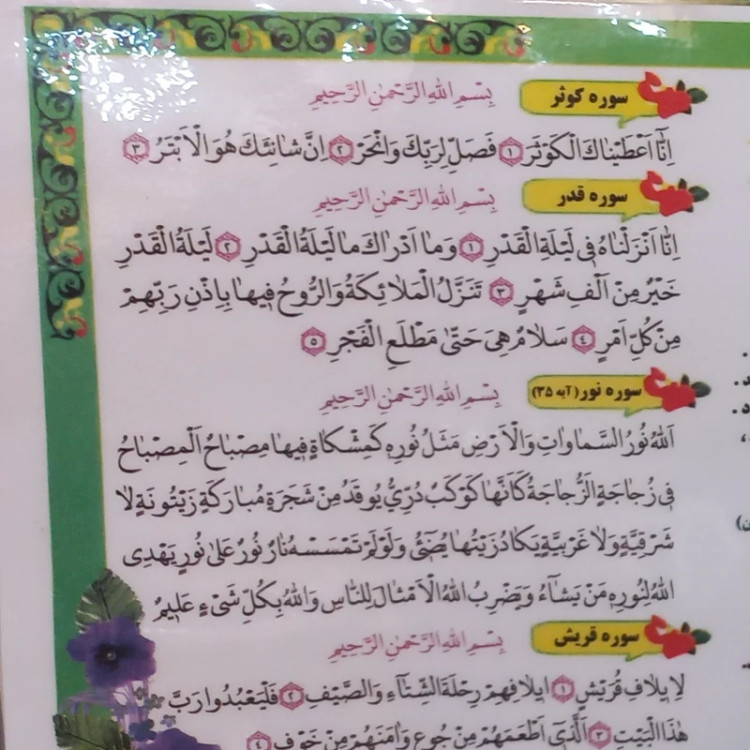 سوره کوثر
بِسْمِ اللهِ الرَّحْمٰنِ الرَّحِيمِ
اِنَّٓا اَعْطَيْنَاكَ الْكَوْثَرَ ١ فَصَلِّ لِرَبِّكَ وَانْحَرْ ٢ اِنَّ شَانِئَكَ هُوَ الْاَبْتَرُ ٣
سوره قدر
بِسْمِ اللهِ الرَّحْمٰنِ الرَّحِيمِ
اِنَّا اَنْزَلْنَاهُ فِى لَيْلَةِ الْقَدْرِ ١ وَمَا اَدْرَاكَ مَا لَيْلَةُ الْقَدْرِ ٢ لَيْلَةُ الْقَدْرِ
خَيْرٌ مِنْ اَلْفِ شَهْرٍ ٣ تَنَزَّلُ الْمَلَائِكَةُ وَالرُّوحُ فِيهَا بِاِذْنِ رَبِّهِمْ
مِنْ كُلِّ اَمْرٍ ٤ سَلَامٌ هِىَ حَتّٰى مَطْلَعِ الْفَجْرِ ٥
سوره نور (آیه ۳۵)
بِسْمِ اللهِ الرَّحْمٰنِ الرَّحِيمِ
اَللهُ نُورُ السَّمَاوَاتِ وَالْاَرْضِ مَثَلُ نُورِهِ كَمِشْكَاةٍ فِيهَا مِصْبَاحٌ اَلْمِصْبَاحُ
فِى زُجَاجَةٍ اَلزُّجَاجَةُ كَاَنَّهَا كَوْكَبٌ دُرِّىٌّ يُوقَدُ مِنْ شَجَرَةٍ مُبَارَكَةٍ زَيْتُونَةٍ لَا
شَرْقِيَّةٍ وَلَا غَرْبِيَّةٍ يَكَادُ زَيْتُهَا يُضِىٓءُ وَلَوْ لَمْ تَمْسَسْهُ نَارٌ نُورٌ عَلٰى نُورٍ يَهْدِى
اللهُ لِنُورِهِ مَنْ يَشَاءُ وَيَضْرِبُ اللهُ الْاَمْثَالَ لِلنَّاسِ وَاللهُ بِكُلِّ شَىْءٍ عَلِيمٌ
سوره قریش
بِسْمِ اللهِ الرَّحْمٰنِ الرَّحِيمِ
لِاِيلَافِ قُرَيْشٍ ١ اِيلَافِهِمْ رِحْلَةَ الشِّتَاءِ وَالصَّيْفِ ٢ فَلْيَعْبُدُوا رَبَّ
هٰذَا الْبَيْتِ ٣ اَلَّذِى اَطْعَمَهُمْ مِنْ جُوعٍ وَاٰمَنَهُمْ مِنْ خَوْفٍ ٤